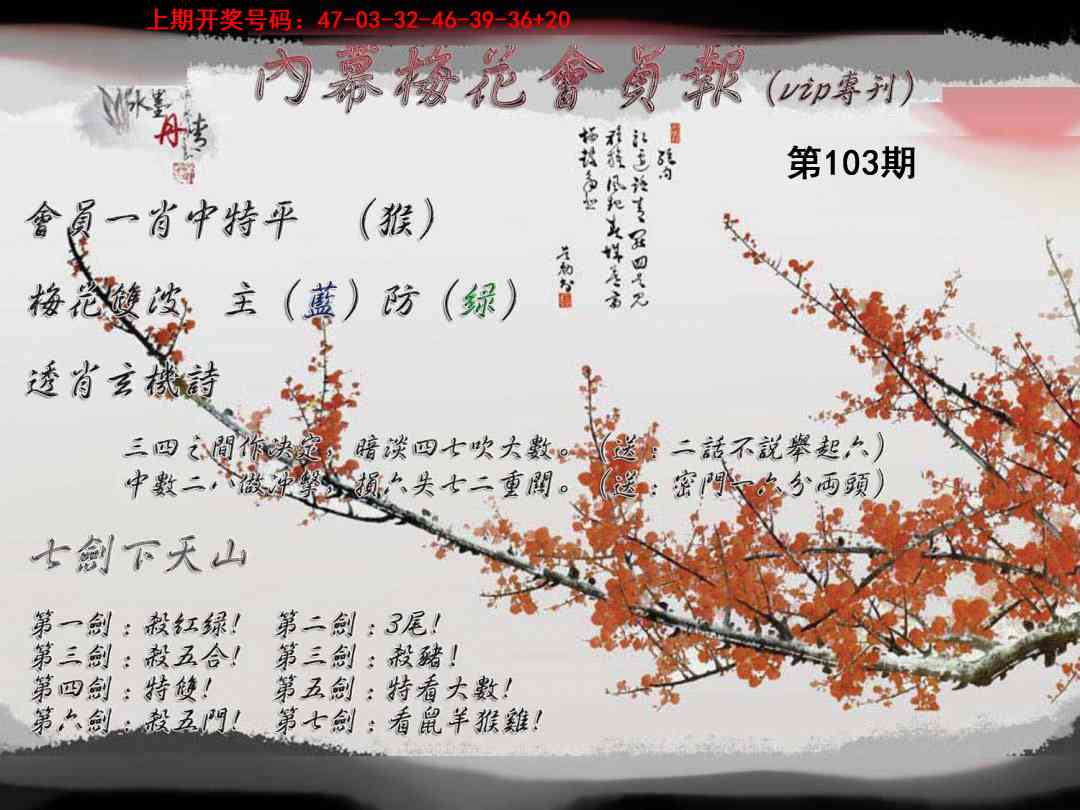 上期开奖号码：47-03-32-46-39-36+20
內幕梅花會員報（vip專刊）
水墨
丹青
第103期
絕句
會員一肖中特平　（猴）
梅花雙波　主（藍）防（绿）
透肖玄機詩
三四之間作决定，暗淡四七吹大數。（送：二話不説舉起六）
中數二八做沖擊，損六失七二重関。（送：密門一六分両頭）
七劍下天山
第一劍：殺紅绿！　第二劍：3尾！
第三劍：殺五合！　第三劍：殺豬！
第四劍：特雙！　第五劍：特看大數！
第六劍：殺五門！　第七劍：看鼠羊猴雞！